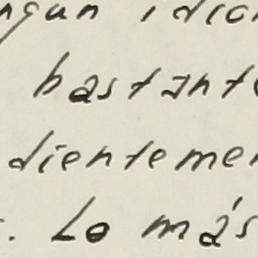 ngun idio
bastante
dientemen
. Lo más